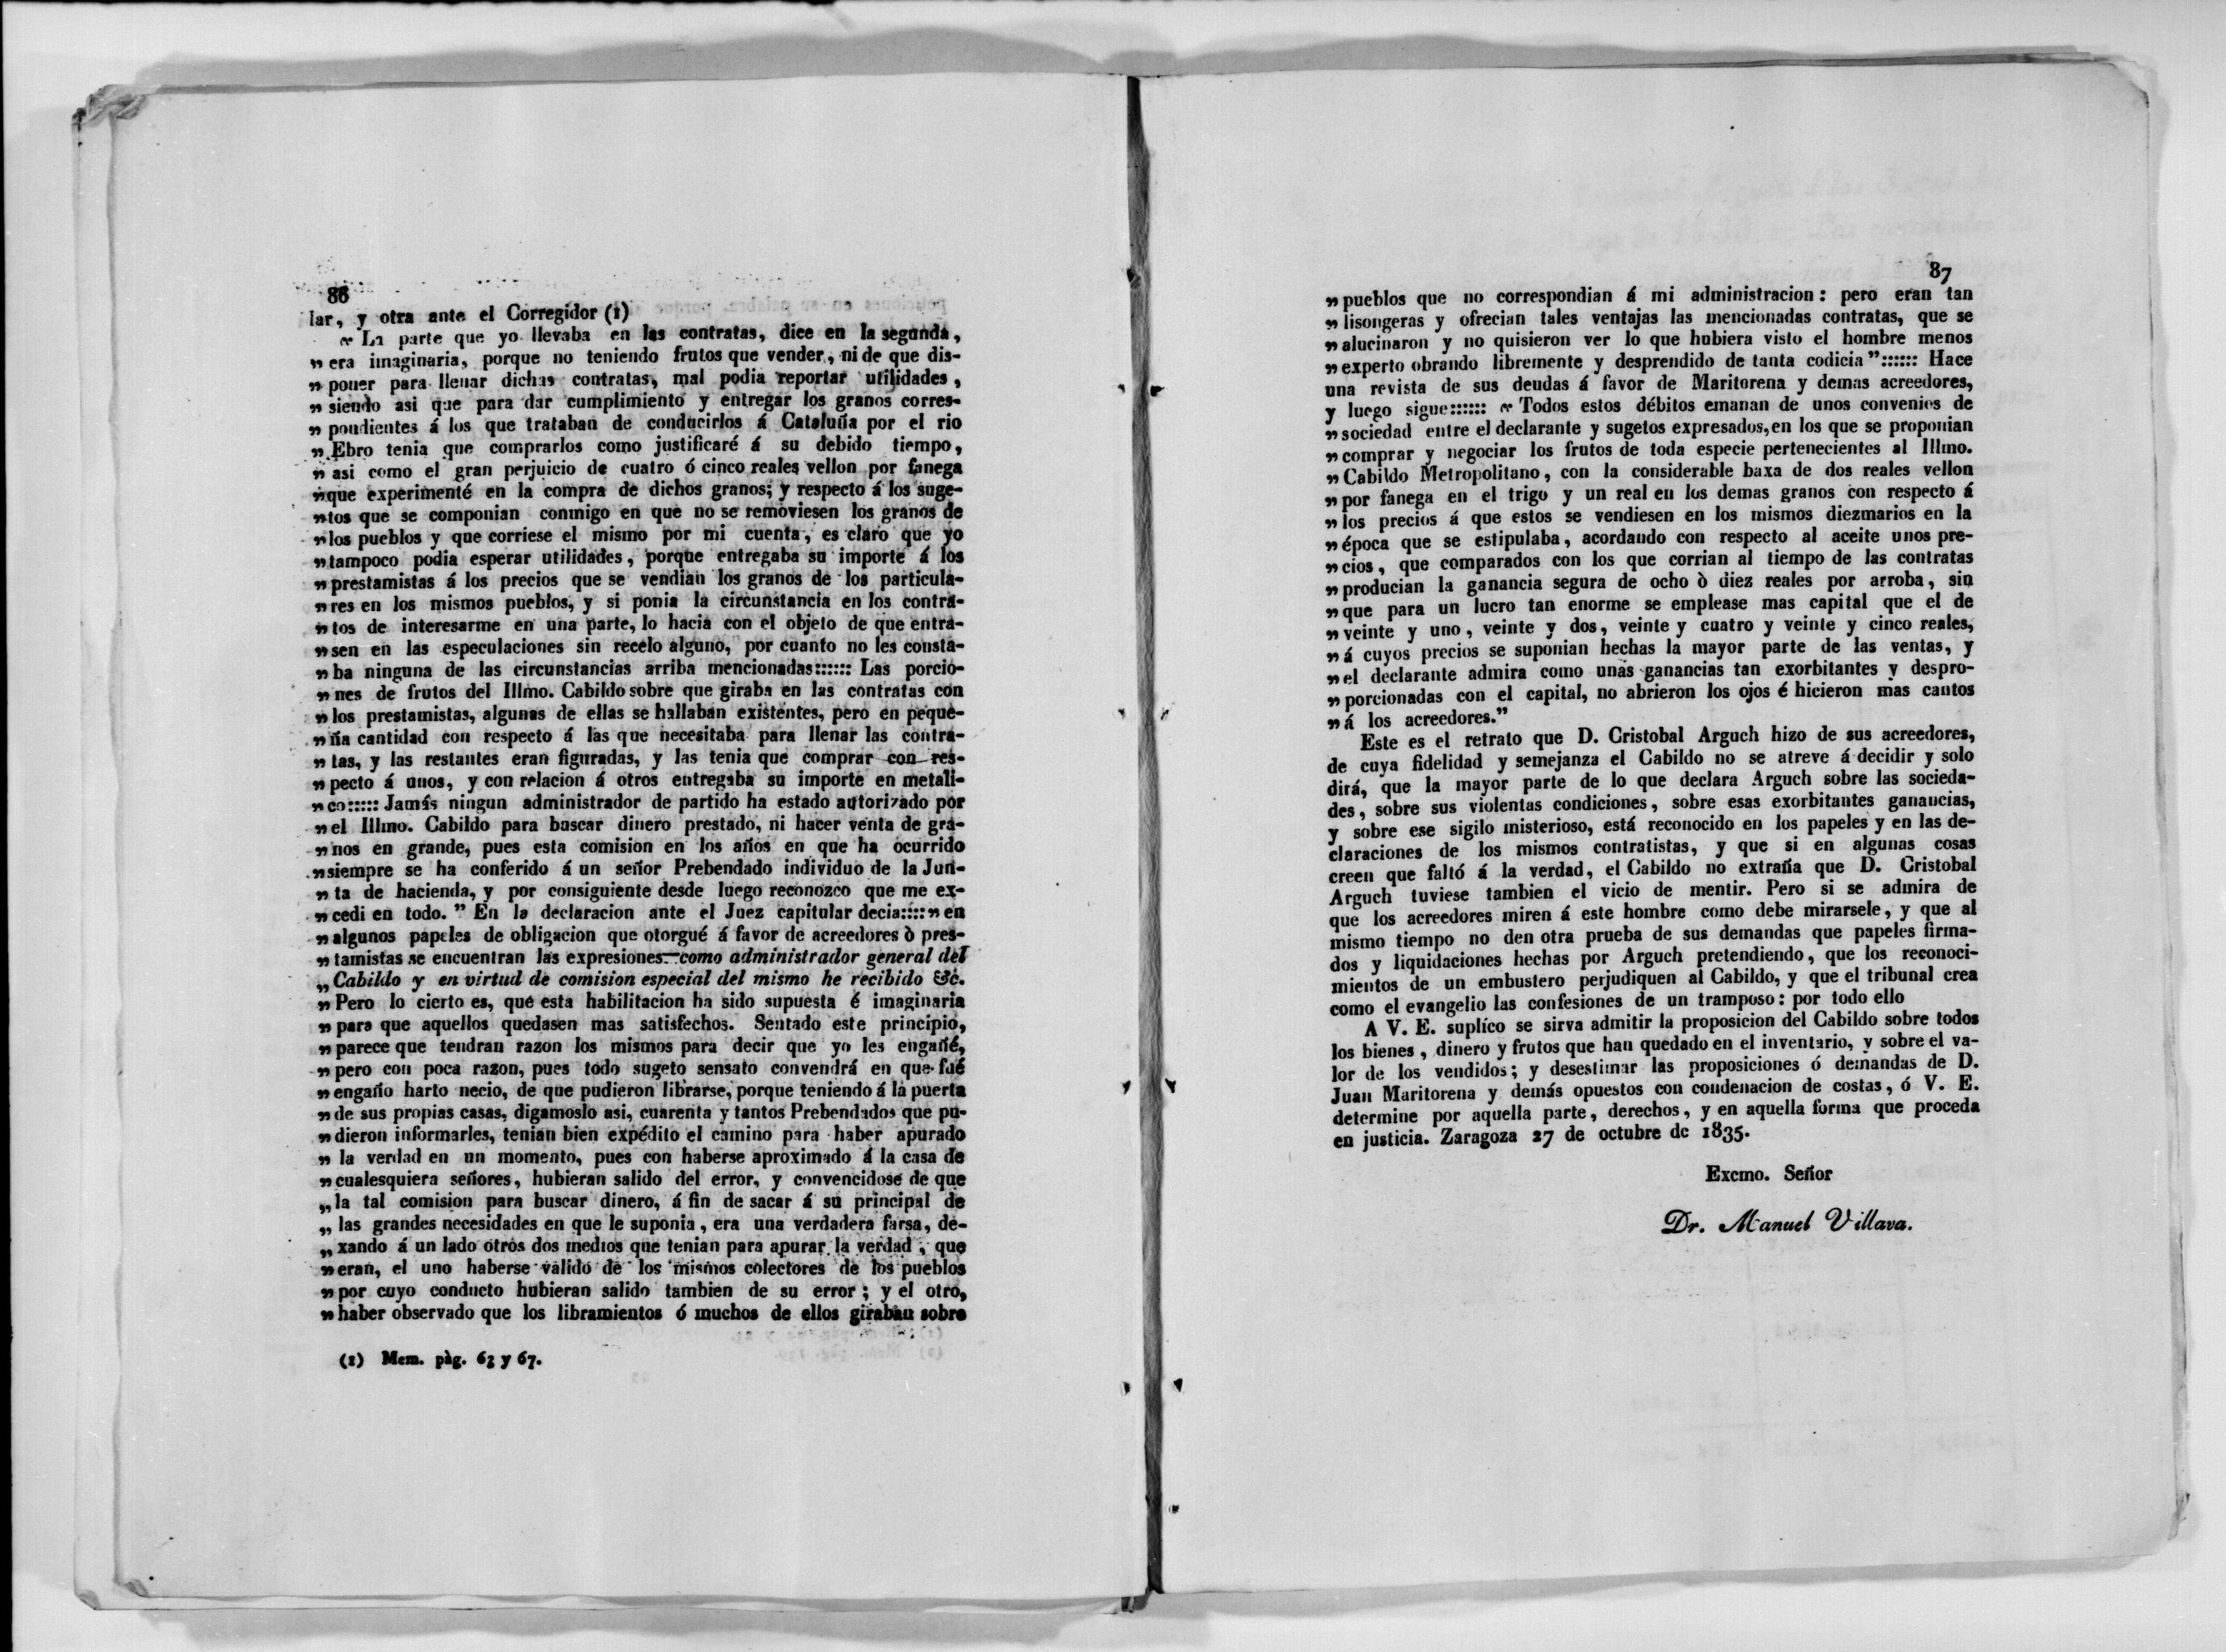 86
lar, y otra ante el Corregidor (1)
« La parte que yo llevaba en las contratas, dice en la segunda,
» era imaginaria, porque no teniendo frutos que vender, ni de que dis-
» poner para llenar dichas contratas, mal podia reportar utilidades,
» siendo asi que para dar cumplimiento y entregar los granos corres-
» pondientes á los que trataban de conducirlos á Cataluña por el rio
» Ebro tenia que comprarlos como justificaré á su debido tiempo,
» asi como el gran perjuicio de cuatro ó cinco reales vellon por fanega
» que experimenté en la compra de dichos granos; y respecto á los suge-
» tos que se componian conmigo en que no se removiesen los granos de
» los pueblos y que corriese el mismo por mi cuenta, es claro que yo
» tampoco podia esperar utilidades, porque entregaba su importe á los
» prestamistas á los precios que se vendian los granos de los particula-
» res en los mismos pueblos, y si ponia la circunstancia en los contra-
» tos de interesarme en una parte, lo hacia con el objeto de que entra-
» sen en las especulaciones sin recelo alguno, por cuanto no les consta-
» ba ninguna de las circunstancias arriba mencionadas:::::: Las porcio-
» nes de frutos del Illmo. Cabildo sobre que giraba en las contratas con
» los prestamistas, algunas de ellas se hallaban existentes, pero en peque-
» ña cantidad con respecto á las que necesitaba para llenar las contra-
» tas, y las restantes eran figuradas, y las tenia que comprar con res-
» pecto á unos, y con relacion á otros entregaba su importe en metali-
» co::::: Jamás ningun administrador de partido ha estado autorizado por
» el Illmo. Cabildo para buscar dinero prestado, ni hacer venta de gra-
» nos en grande, pues esta comision en los años en que ha ocurrido
» siempre se ha conferido á un señor Prebendado individuo de la Jun-
» ta de hacienda, y por consiguiente desde luego reconozco que me ex-
» cedi en todo. ” En la declaracion ante el Juez capitular decia::::» en
» algunos papeles de obligacion que otorgué á favor de acreedores ò pres-
» tamistas se encuentran las expresiones—como administrador general del
„ Cabildo y en virtud de comision especial del mismo he recibido &c.
» Pero lo cierto es, que esta habilitacion ha sido supuesta é imaginaria
» para que aquellos quedasen mas satisfechos. Sentado este principio,
» parece que tendran razon los mismos para decir que yo les engañé,
» pero con poca razon, pues todo sugeto sensato convendrá en que fué
» engaño harto necio, de que pudieron librarse, porque teniendo á la puerta
» de sus propias casas, digamoslo asi, cuarenta y tantos Prebendados que pu-
» dieron informarles, tenian bien expédito el camino para haber apurado
» la verdad en un momento, pues con haberse aproximado á la casa de
» cualesquiera señores, hubieran salido del error, y convencidose de que
„ la tal comision para buscar dinero, á fin de sacar á su principal de
„ las grandes necesidades en que le suponia, era una verdadera farsa, de-
„ xando á un lado otros dos medios que tenian para apurar la verdad, que
» eran, el uno haberse valido de los mismos colectores de los pueblos
» por cuyo conducto hubieran salido tambien de su error; y el otro,
» haber observado que los libramientos ó muchos de ellos giraban sobre
(1) Mem. pàg. 63 y 67.
87
» pueblos que no correspondian á mi administracion: pero eran tan
» lisongeras y ofrecian tales ventajas las mencionadas contratas, que se
» alucinaron y no quisieron ver lo que hubiera visto el hombre menos
» experto obrando libremente y desprendido de tanta codicia”:::::: Hace
una revista de sus deudas á favor de Maritorena y demas acreedores,
y luego sigue:::::: « Todos estos débitos emanan de unos convenios de
» sociedad entre el declarante y sugetos expresados, en los que se proponian
» comprar y negociar los frutos de toda especie pertenecientes al Illmo.
» Cabildo Metropolitano, con la considerable baxa de dos reales vellon
» por fanega en el trigo y un real en los demas granos con respecto á
» los precios á que estos se vendiesen en los mismos diezmarios en la
» época que se estipulaba, acordando con respecto al aceite unos pre-
» cios, que comparados con los que corrian al tiempo de las contratas
» producian la ganancia segura de ocho ò diez reales por arroba, sin
» que para un lucro tan enorme se emplease mas capital que el de
» veinte y uno, veinte y dos, veinte y cuatro y veinte y cinco reales,
» á cuyos precios se suponian hechas la mayor parte de las ventas, y
» el declarante admira como unas ganancias tan exorbitantes y despro-
» porcionadas con el capital, no abrieron los ojos é hicieron mas cautos
» á los acreedores.”
Este es el retrato que D. Cristobal Arguch hizo de sus acreedores,
de cuya fidelidad y semejanza el Cabildo no se atreve á decidir y solo
dirá, que la mayor parte de lo que declara Arguch sobre las socieda-
des, sobre sus violentas condiciones, sobre esas exorbitantes ganancias,
y sobre ese sigilo misterioso, está reconocido en los papeles y en las de-
claraciones de los mismos contratistas, y que si en algunas cosas
creen que faltó á la verdad, el Cabildo no extraña que D. Cristobal
Arguch tuviese tambien el vicio de mentir. Pero si se admira de
que los acreedores miren á este hombre como debe mirarsele, y que al
mismo tiempo no den otra prueba de sus demandas que papeles firma-
dos y liquidaciones hechas por Arguch pretendiendo, que los reconoci-
mientos de un embustero perjudiquen al Cabildo, y que el tribunal crea
como el evangelio las confesiones de un tramposo: por todo ello
A V. E. suplico se sirva admitir la proposicion del Cabildo sobre todos
los bienes, dinero y frutos que han quedado en el inventario, y sobre el va-
lor de los vendidos; y desestimar las proposiciones ó demandas de D.
Juan Maritorena y demás opuestos con condenacion de costas, ó V. E.
determine por aquella parte, derechos, y en aquella forma que proceda
en justicia. Zaragoza 27 de octubre de 1835.
Excmo. Señor
Dr. Manuel Villava.